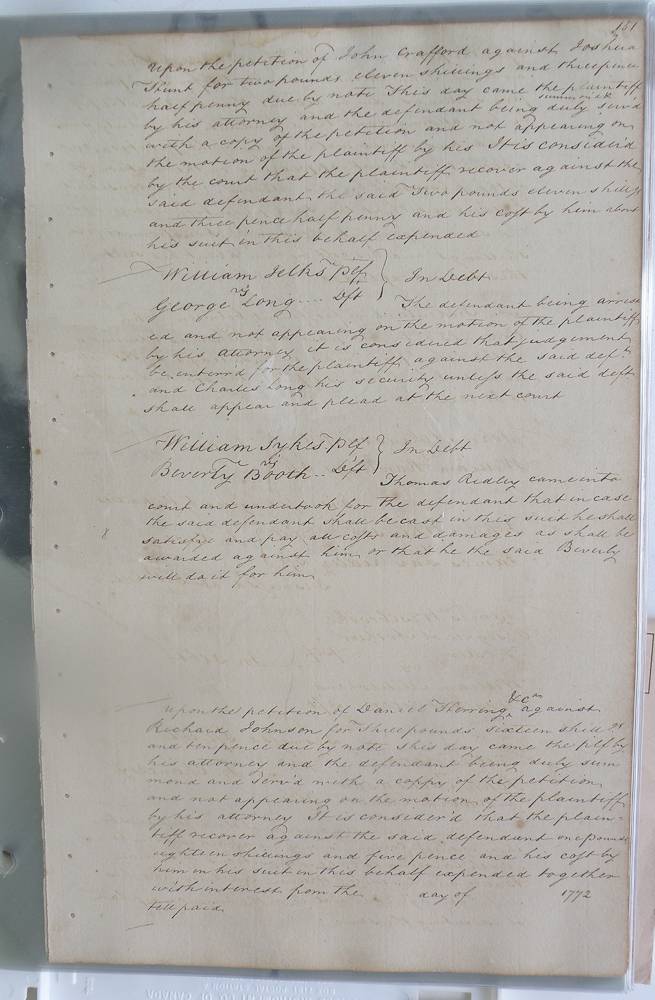 151
Upon the petition of John Crafford against Joshua
Thunt for two pounds eleven shillings and three pence
half penny due by note This day came the plaintiff
by his attorney and the defendant being duly summoned serv'd
with a copy of the petition and not appearing on
the motion of the plaintiff by his It is consider'd
by the court that the plaintiff recover against the
said defendant the said Two pounds eleven shillgs
and three pence half penny and his cost by him about
his suit in this behalf expended
William Jelks plf
vs
George Long .... Dft
In Debt
The defendant being arrest
ed and not appearing on the motion of the plaintiff
by his attorney it is considered that judgement
be enterrd for the plaintiff against the said deft
and Charles Long his security unless the said deft
shall appear and plead at the next court
William Sykes plf
vs
Beverly Booth .. Dft
In Debt
Thomas Ridley came into
court and undertook for the defendant that in case
the said defendant shall be cast in this suit he shall
satisfye and pay all costs and damages as shall be
awarded against him or that he the said Beverly
will do it for him
Upon the petition of Daniel Herring &c against
Richard Johnson for Three pounds sixteen shill gs
and ten pence due by note This day came the plf by
his attorney and the defendant being duly sum
mond and Serv'd with a coppy of the petition
and not appearing on the motion of the plaintiff
by his attorney It is consider'd that the plain=
tiff recover against the said defendant one pound
eighteen shillings and five pence and his cost by
him in his suit in this behalf expended together
with interest from the day of 1772
till paid